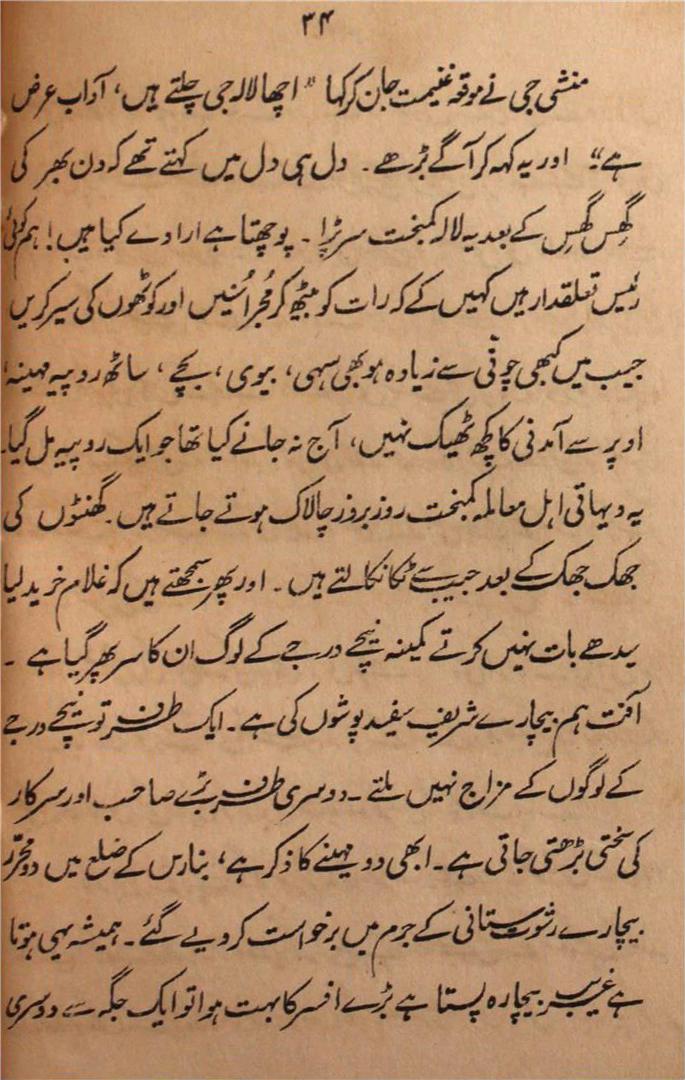 ۳۴
منشی جی نے موقعہ غنیمت جان کر کہا "اچھا لالہ جی چلتے ہیں، آداب عرض
ہے" اور یہ کہہ کر آگے بڑھے۔ دل ہی دل میں کہتے تھے کہ دن بھر کی
گھِس گھِس کے بعد یہ لالہ کمبخت سر پڑا۔ پوچھتا ہے ارادے کیا ہیں! ہم کوئی
رئیس تعلقدار ہیں کہیں کے کہ رات کو بیٹھ کر مُجرا سُنیں اور کوٹھوں کی سیر کریں
جیب میں کبھی چونّی سے زیادہ ہو بھی سہی، بیوی، بچے، ساٹھ روپیہ مہینہ،
اوپر سے آمدنی کا کچھ ٹھیک نہیں، آج نہ جانے کیا تھا جو ایک روپیہ مل گیا۔
یہ دیہاتی اہل معاملہ کمبخت روز بروز چالاک ہوتے جاتے ہیں۔ گھنٹوں کی
جھک جھک کے بعد جیب سے ٹکا نکالتے ہیں۔ اور پھر سمجھتے ہیں کہ غلام خرید لیا
سیدھے بات نہیں کرتے کمینہ نیچے درجے کے لوگ ان کا سر پھر گیا ہے۔
آفت ہم بیچارے شریف سفید پوشوں کی ہے۔ ایک طرف تو نیچے درجے
کے لوگوں کے مزاج نہیں ملتے۔ دوسری طرف بڑے صاحب اور سرکار
کی سختی بڑھتی جاتی ہے۔ ابھی دو مہینے کا ذکر ہے، بنارس کے ضلع میں دو محرّر
بیچارے رشوت ستانی کے جرم میں برخواست کر دیے گئے۔ ہمیشہ یہی ہوتا
ہے غریب بیچارہ پستا ہے بڑے افسر کا بہت ہوا تو ایک جگہ سے دوسری